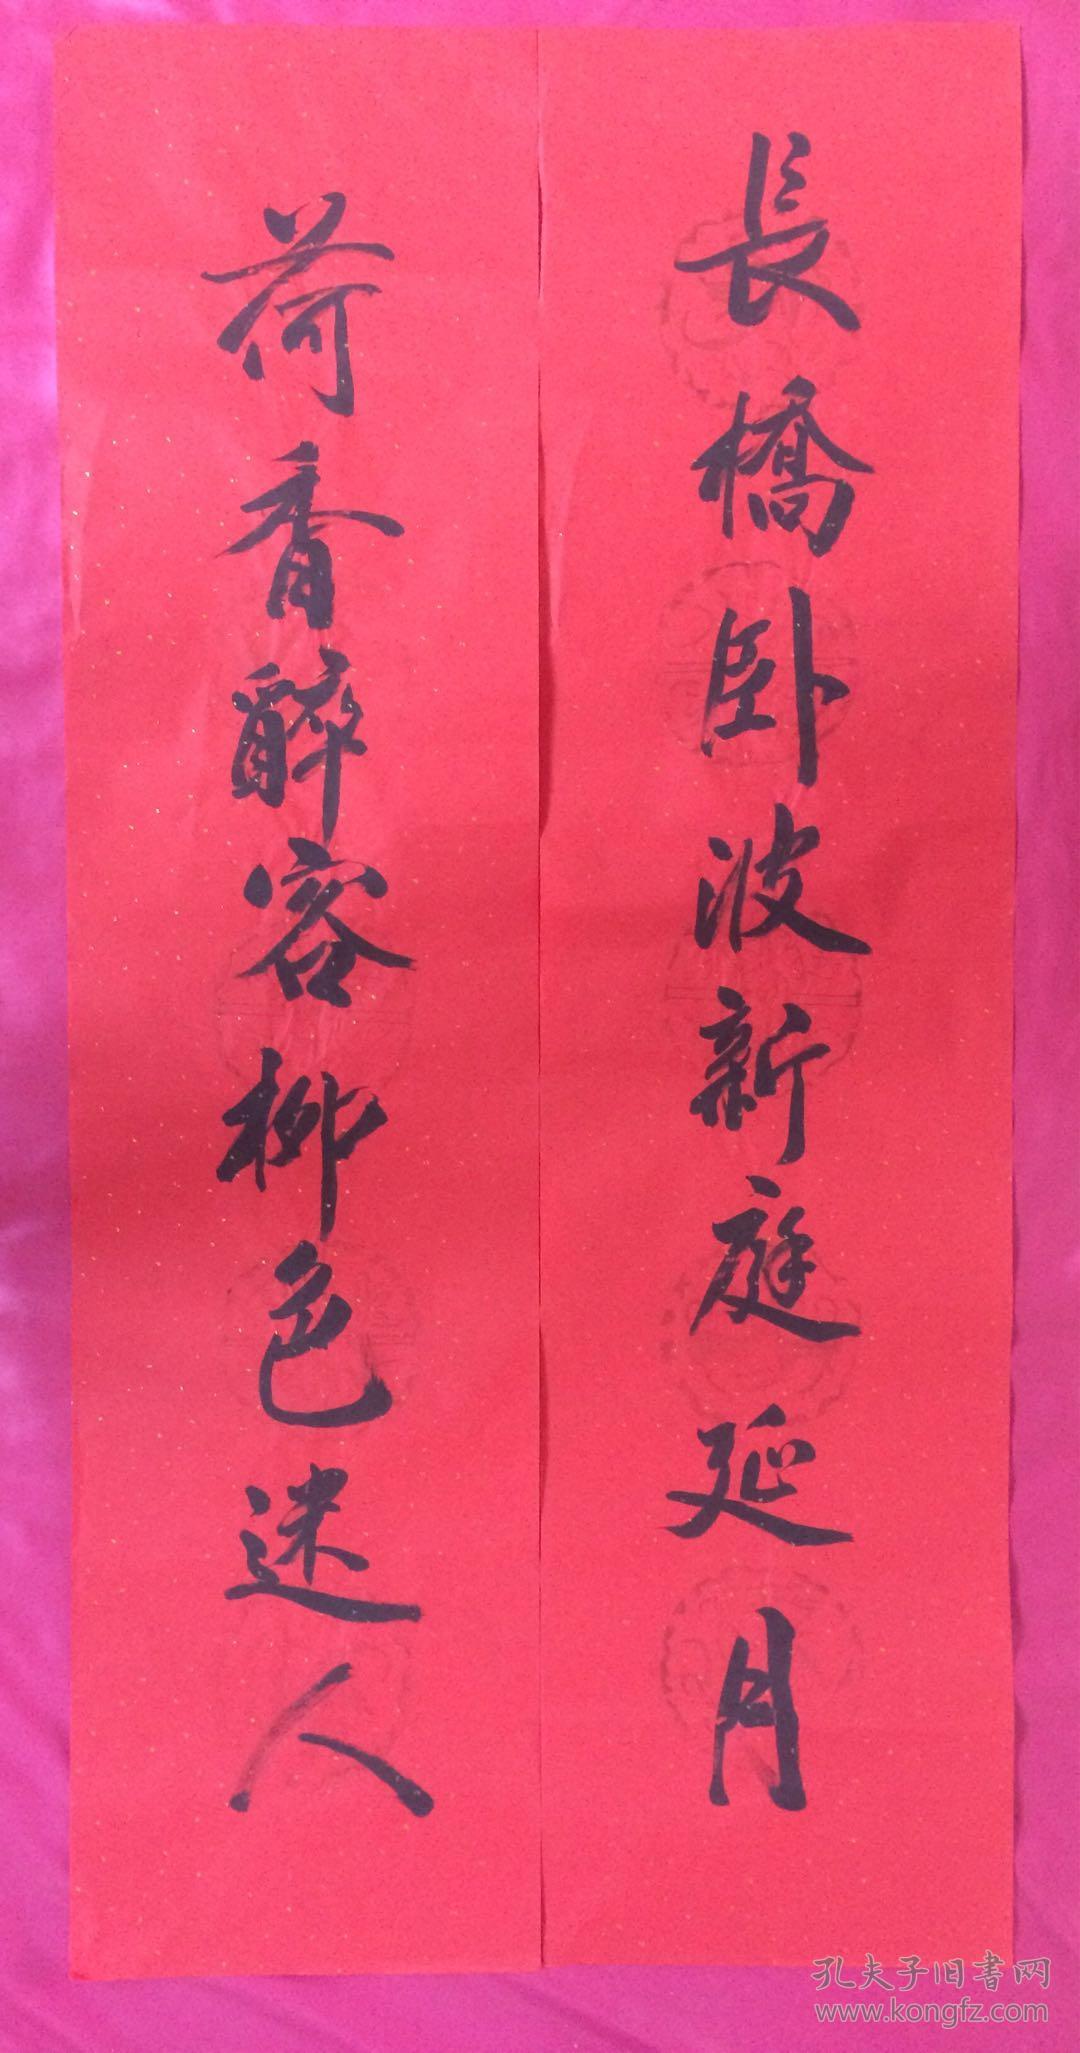 長橋卧波新庭延月
荷香醉客柳色迷人
孔夫子旧书网
www.kongfz.com